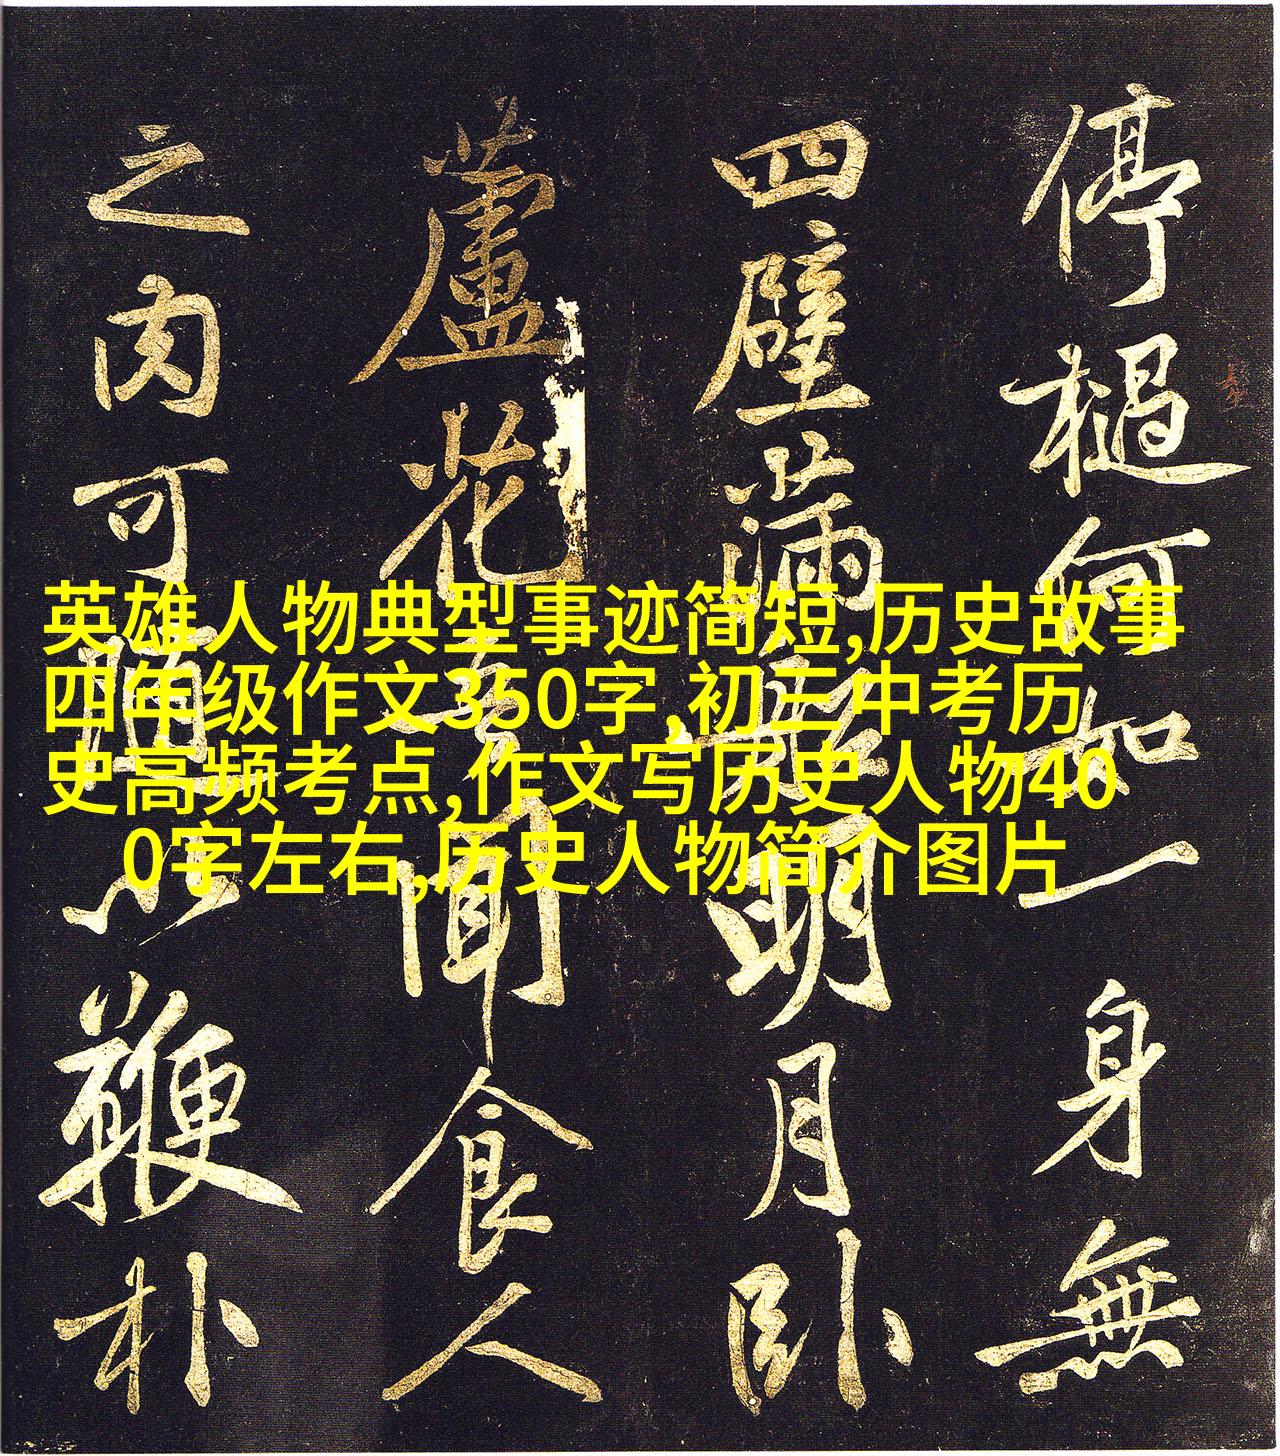 英雄人物典型事迹简短,历史故事
四年级作文350字,初三中考历
史高频考点,作文写历史人物40
0字左右,历史人物简介图片
停檛何如一身無
四壁滿船明月卧
蘆花吾聞食人
之肉可隨以鞭朴